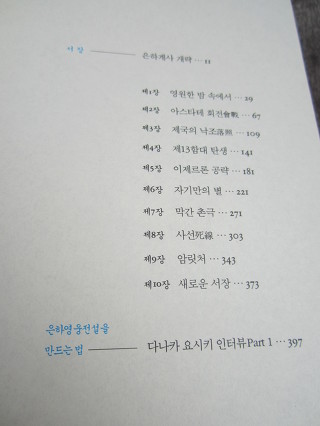 서 장 ── 은하계사 개략 … 11
제1장 영원한 밤 속에서 … 29
제2장 아스타테 회전會戰 … 67
제3장 제국의 낙조落照 … 109
제4장 제13함대 탄생 … 141
제5장 이제르론 공략 … 181
제6장 자기만의 별 … 221
제7장 막간 촌극 … 271
제8장 사선死線 … 303
제9장 암릿처 … 343
제10장 새로운 서장 … 373
은하영웅전설을
만드는 법 ── 다나카 요시키 인터뷰Part 1 … 397